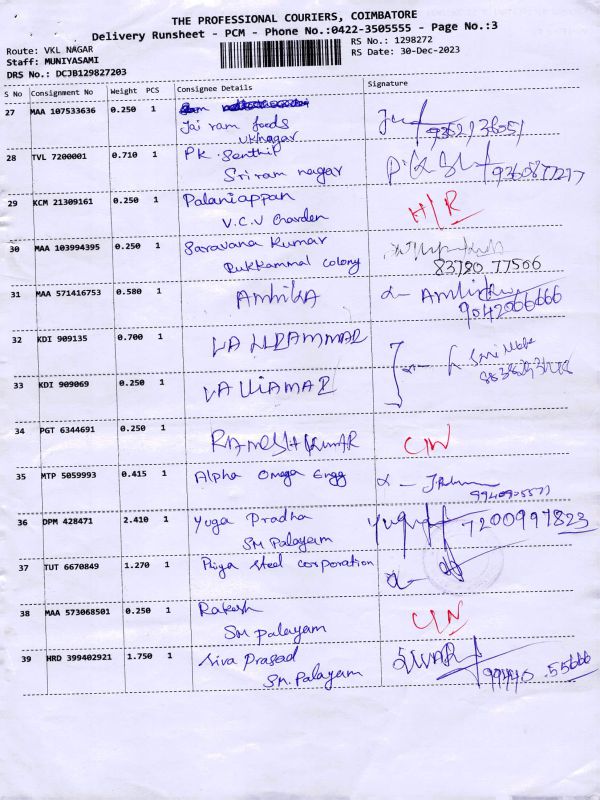 THE PROFESSIONAL COURIERS, COIMBATORE
Delivery Runsheet - PCM - Phone No.:0422-3505555 - Page No.:3
Route: VKL NAGAR
RS No.: 1298272
Staff: MUNIYASAMI
RS Date: 30-Dec-2023
DRS No.: DCJB129827203
S No Consignment No Weight PCS Consignee Details Signature
27 MAA 107533636 0.250 1
Jai ram foods
VKnagar
28 TVL 7200001 0.710 1 P.K. Senthil
Sriram nagar
29 KCM 21309161 0.250 1 Palaniappan H/R
V.C.V
30 MAA 103994395 0.250 1 Saravana Kumar
Rukkammal colony 83780 77566
31 MAA 571416753 0.580 1 Ambika
9042066666
32 KDI 909135 0.700 1
33 KDI 909069 0.250 1
34 PGT 6344691 0.250 1 RAMESH KUMAR
35 MTP 5059993 0.415 1 Alpha Omega Engg
36 DPM 428471 2.410 1 Yuga Pradha
SM Palayam 7200997823
37 TUT 6670849 1.270 1 Priya Steel corporation
38 MAA 573068501 0.250 1 Rakesh
SM palayam
39 HRD 399402921 1.750 1 Siva Prasad
SM. Palayam 99440 55666